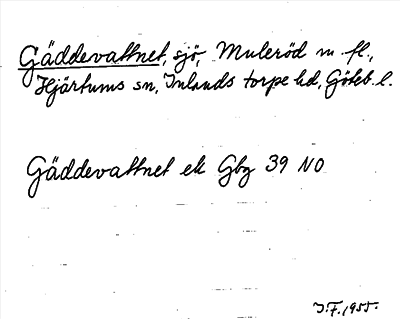 Gäddevattnet, sjö, Muleröd m fl.,
Hjärtums sn, Inlands torpe hd, Göteb. l.
Gäddevattnet ek Gbg 39 NO
I.F. 1955.